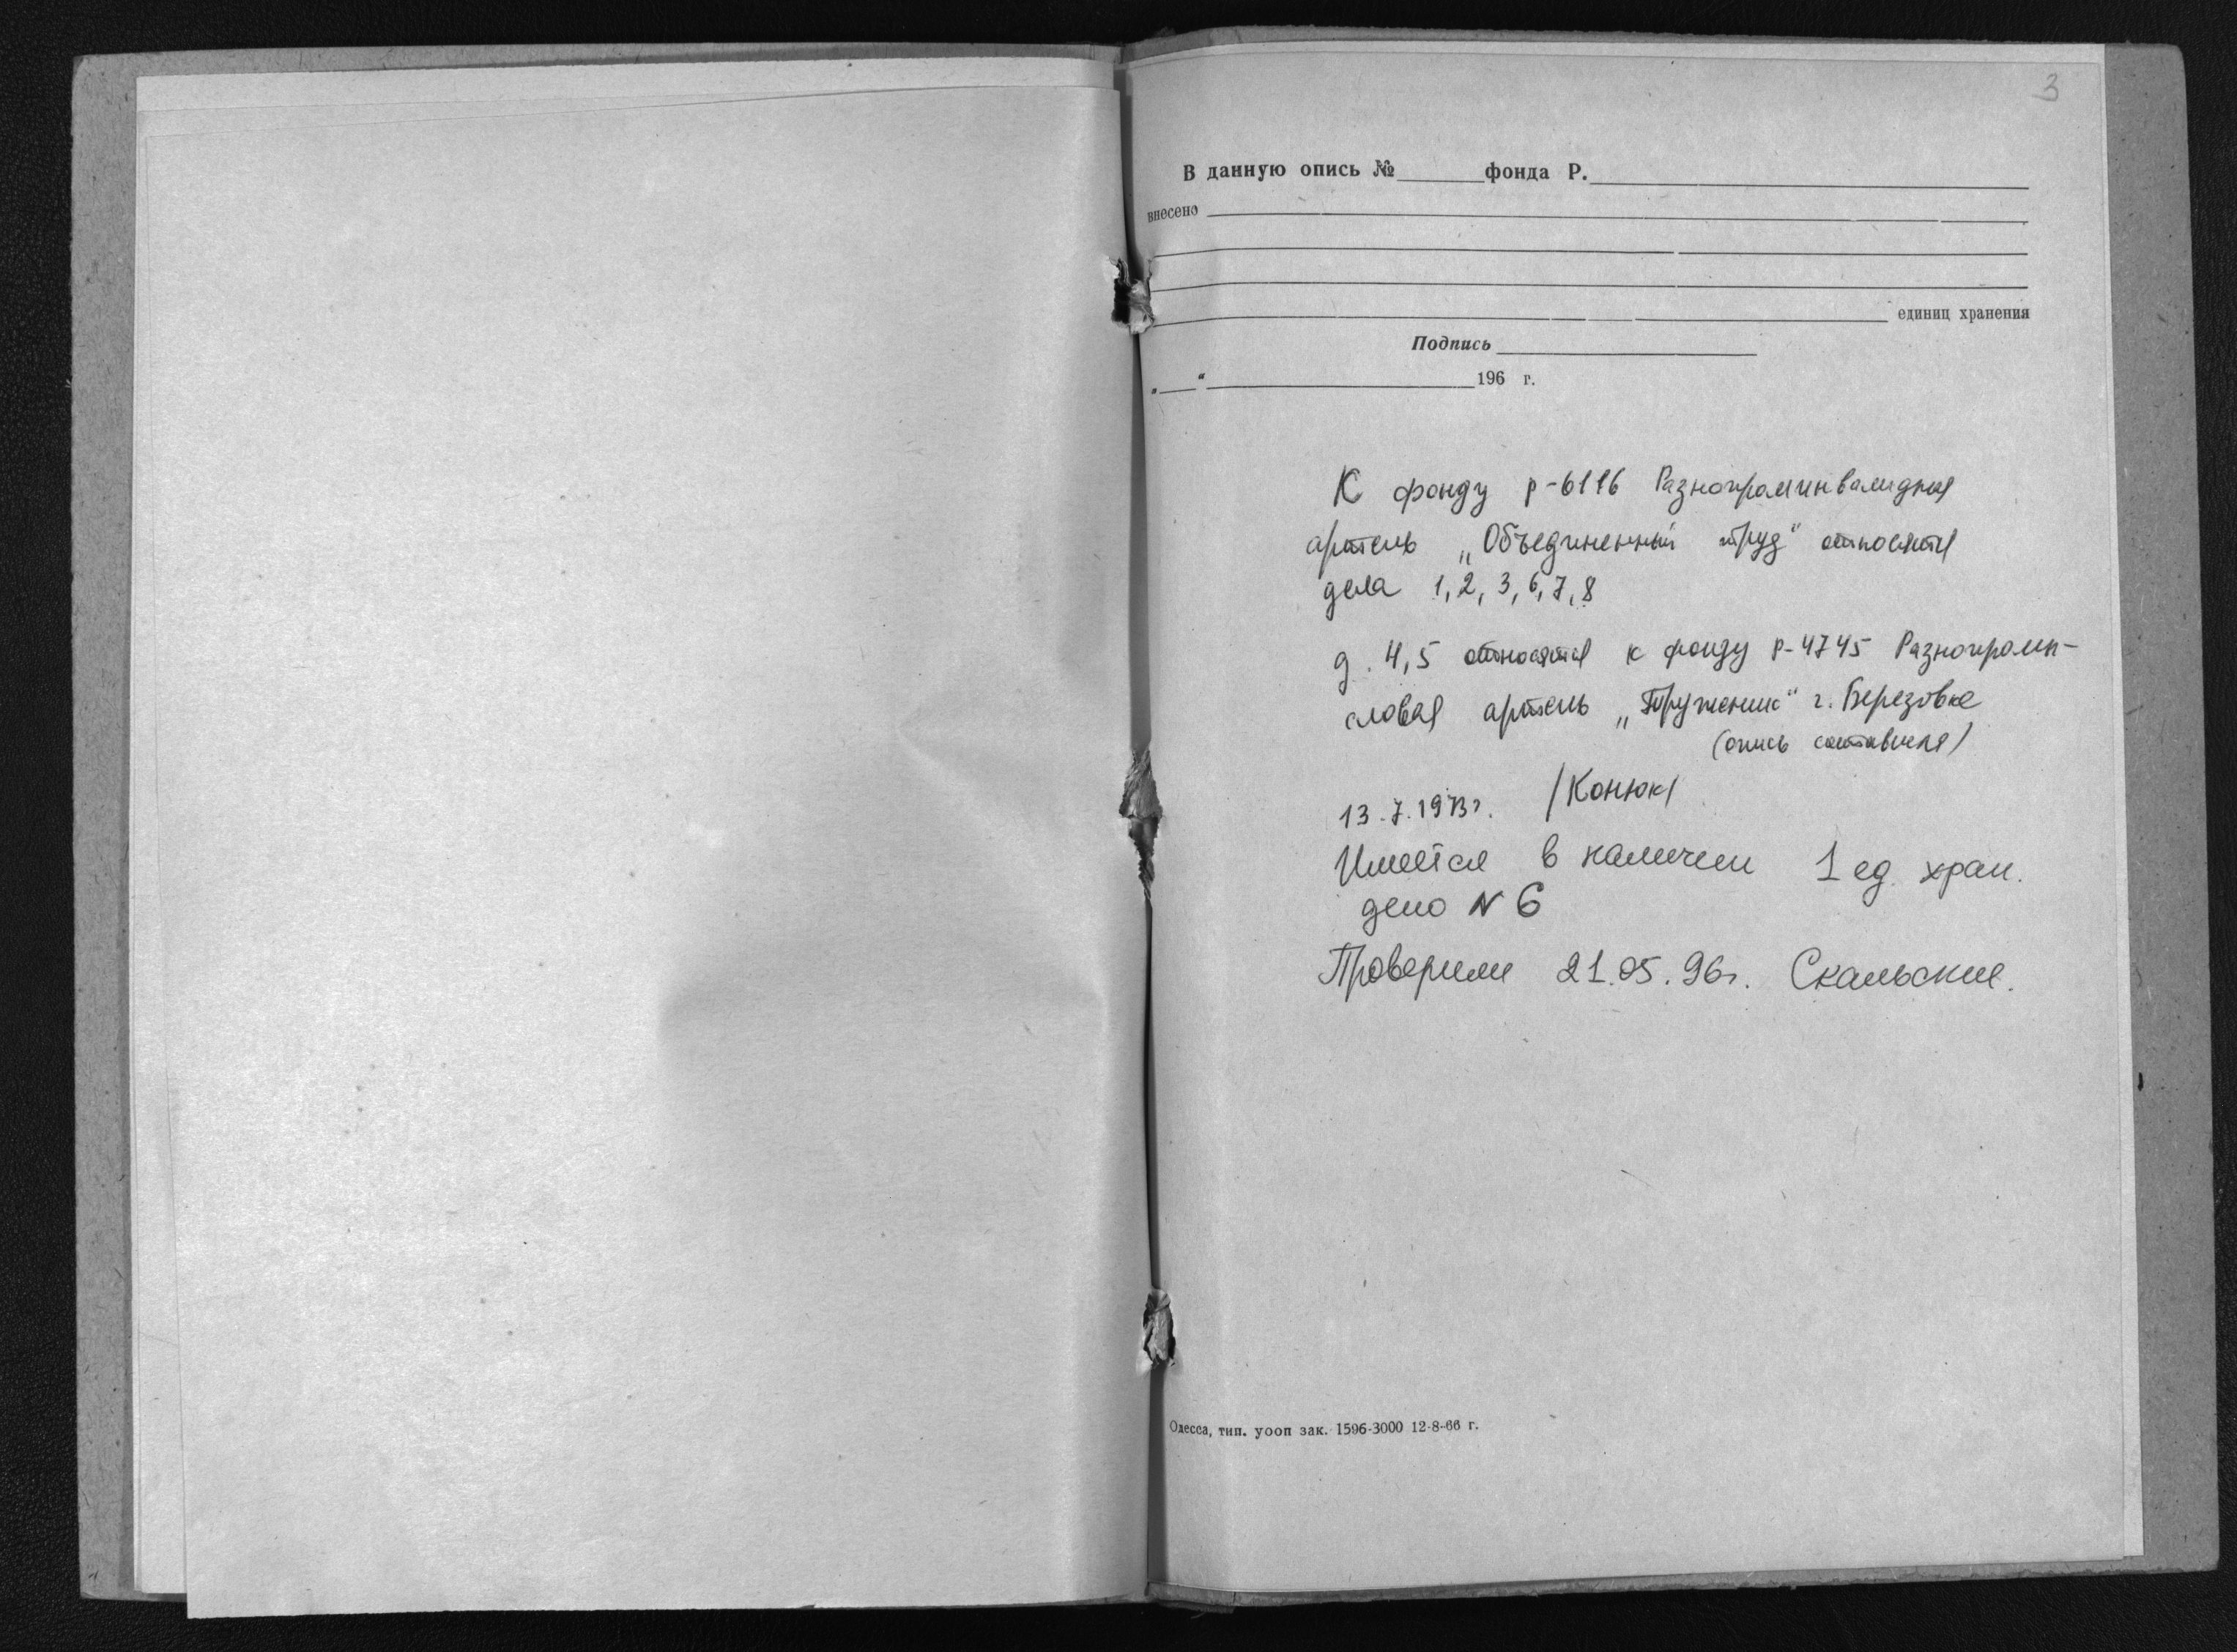 3
В данную опись №______фонда Р.______
внесено
единиц хранения
Подпись
„___“______196 г.
К фонду р-6116 Разнопроминвалидная
артель „Объединенный труд“ относятся
дела 1, 2, 3, 6, 7, 8
д. 4, 5 относятся к фонду р-4745 Разнопромы-
словая артель „Труженик“ г. Березовка
(опись составлена)
13.7.1973г. /Конюк/
Имеется в наличии 1 ед. хран.
дело N 6
Проверили 21.05.96г.
Одесса, тип. уооп зак. 1596-3000 12-8-66 г.